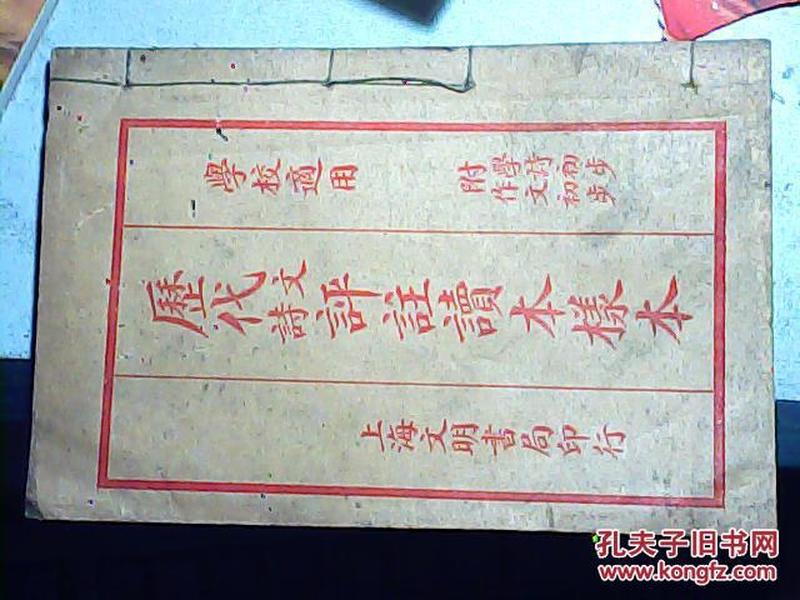 學校適用
附
學詩初步
作文初步
歷代文詩評註讀本樣本
上海文明書局印行
孔夫子旧书网
www.kongfz.com